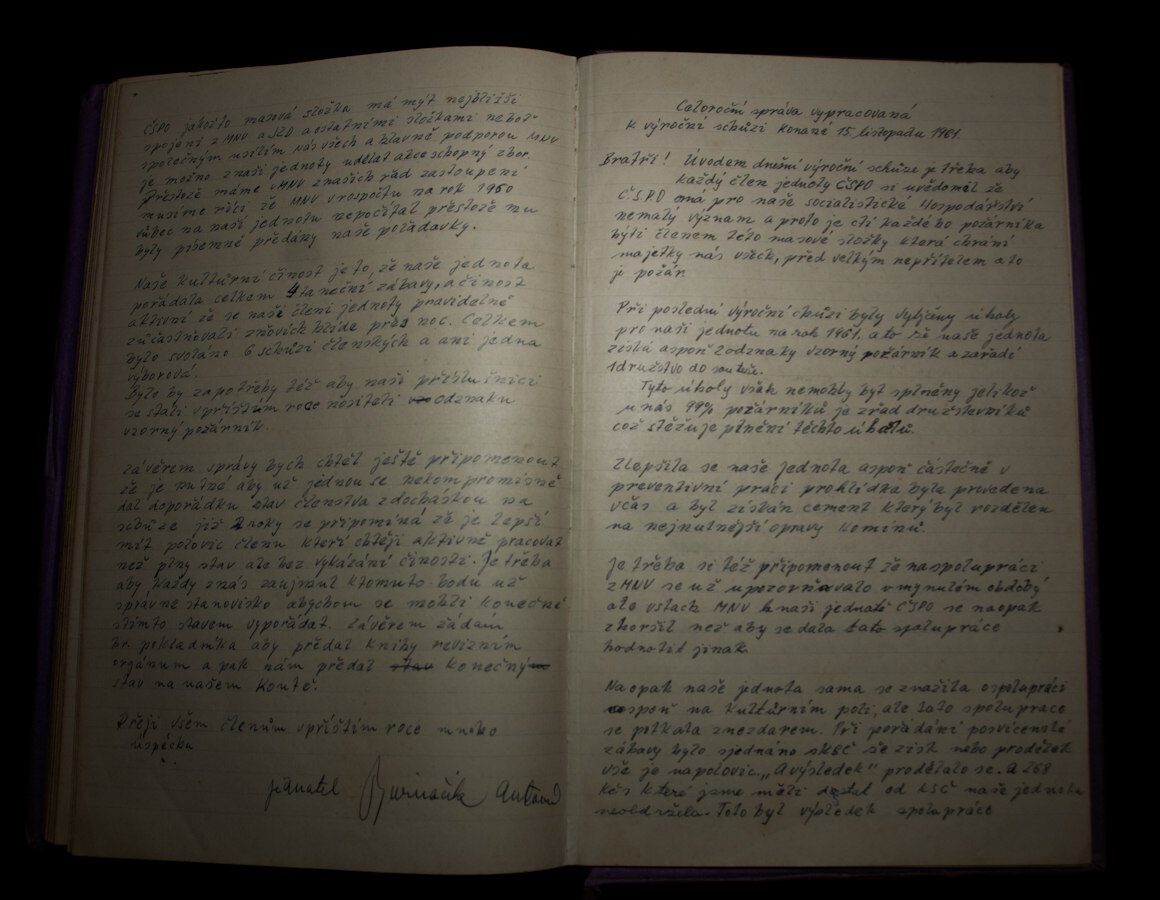 ČSPO jakožto masová složka má mýt nejbližší
spojení z MNV a JZD a ostatními složkami neboť
společným usilím nás všech a hlavně podporou MNV
je možno znaši jednoty udělat akce schopný zbor.
Přestože máme v MNV znašich řad zastoupení
musíme říci že MNV v rospočtu na rok 1960
vůbec na naší jednotu nepočítal přestože mu
byly písemně předány naše požadavky.
Naše kulturní činost je to, že naše jednota
pořádala celkem 4 taneční zábavy, a činost
aktivní že se naši členi jednoty pravidelně
zůčastňovali žňových hlíde přes noc. Celkem
bylo svoláno 6 schůzí členských a ani jedna
výborová.
Bylo by zapotřeby též aby naši příslušníci
se stali v příštím roce nositeli odznaku
vzorný požárník.
Závěrem správy bych chtěl ještě připomenout
že je nutné aby už jednou se nekompromisně
dal dopořádku stav členstva z docháskou na
schůze již 2 roky se připomíná žě je lepší
mít polovic členu kteří chtěji aktivně pracovat
než plny stav ale bez vykázání činosti. Je třeba
aby každy znás zaujmul ktomuto bodu už
správné stanovisko abychom se mohli konečně
stímto stavem vypořádat. Závěrem žádám
br. pokladníka aby předal knihy revizním
orgánum a pak nám předal stav konečný
stav na našem kontě.
Přeji všem členům v příštím roce mnoho
úspěchu
jednatel Antonín
Celoroční správa vypracovaná
k výroční schůzi konané 15. listopadu 1961.
Bratři! Úvodem dnešní výroční schůze je třeba aby
každý člen jednoty ČSPO si uvědoměl že
Č.S.P.O má pro naše socialistické Hospodářství
nemalý význam a proto je ctí každého požárníka
býti členem této masové složky která chrání
majetky nás všech, před velkým nepřítelem a to
je požár.
Při poslední výroční chůzi byly vytyčeny úholy
pro naši jednotu na rok 1961, a to že naše jednota
získá aspoň 2 odznaky vzorný požárník a zařadí
1 družstvo do soutěže.
Tyto úholy však nemohly byt splněny jelikož
u nás 99% požárníků je zřad družstevníků
což stěžuje plnění těchto úholů.
Zlepšila se naše jednota aspoň částečně v
preventivní práci prohlídka byla provedena
včas a byl získán cement který byl rozdělen
na nejnutnější opravy komínů.
Je třeba si též připomenout že na spolupráci
z MNV se už upozorňovalo v mynulém období
ale vstach MNV k naší jednotě ČSPO se naopak
zhoršil než aby se dala tato spolupráce
hodnotit jinak.
Naopak naše jednota sama se znažila ospolupráci
aspoň na kulturním poli, ale tato spoluprace
se potkala znezdarem. Při pořádání posvícenské
zábavy bylo sjednáno sKSČ že zisk nebo prodělek
vše je napolovic. „A výsledek" prodělalo se. A 268
kčs které jsme měli dostat od KSČ naše jednota
neobdržela. Toto byl výsledek spolupráce